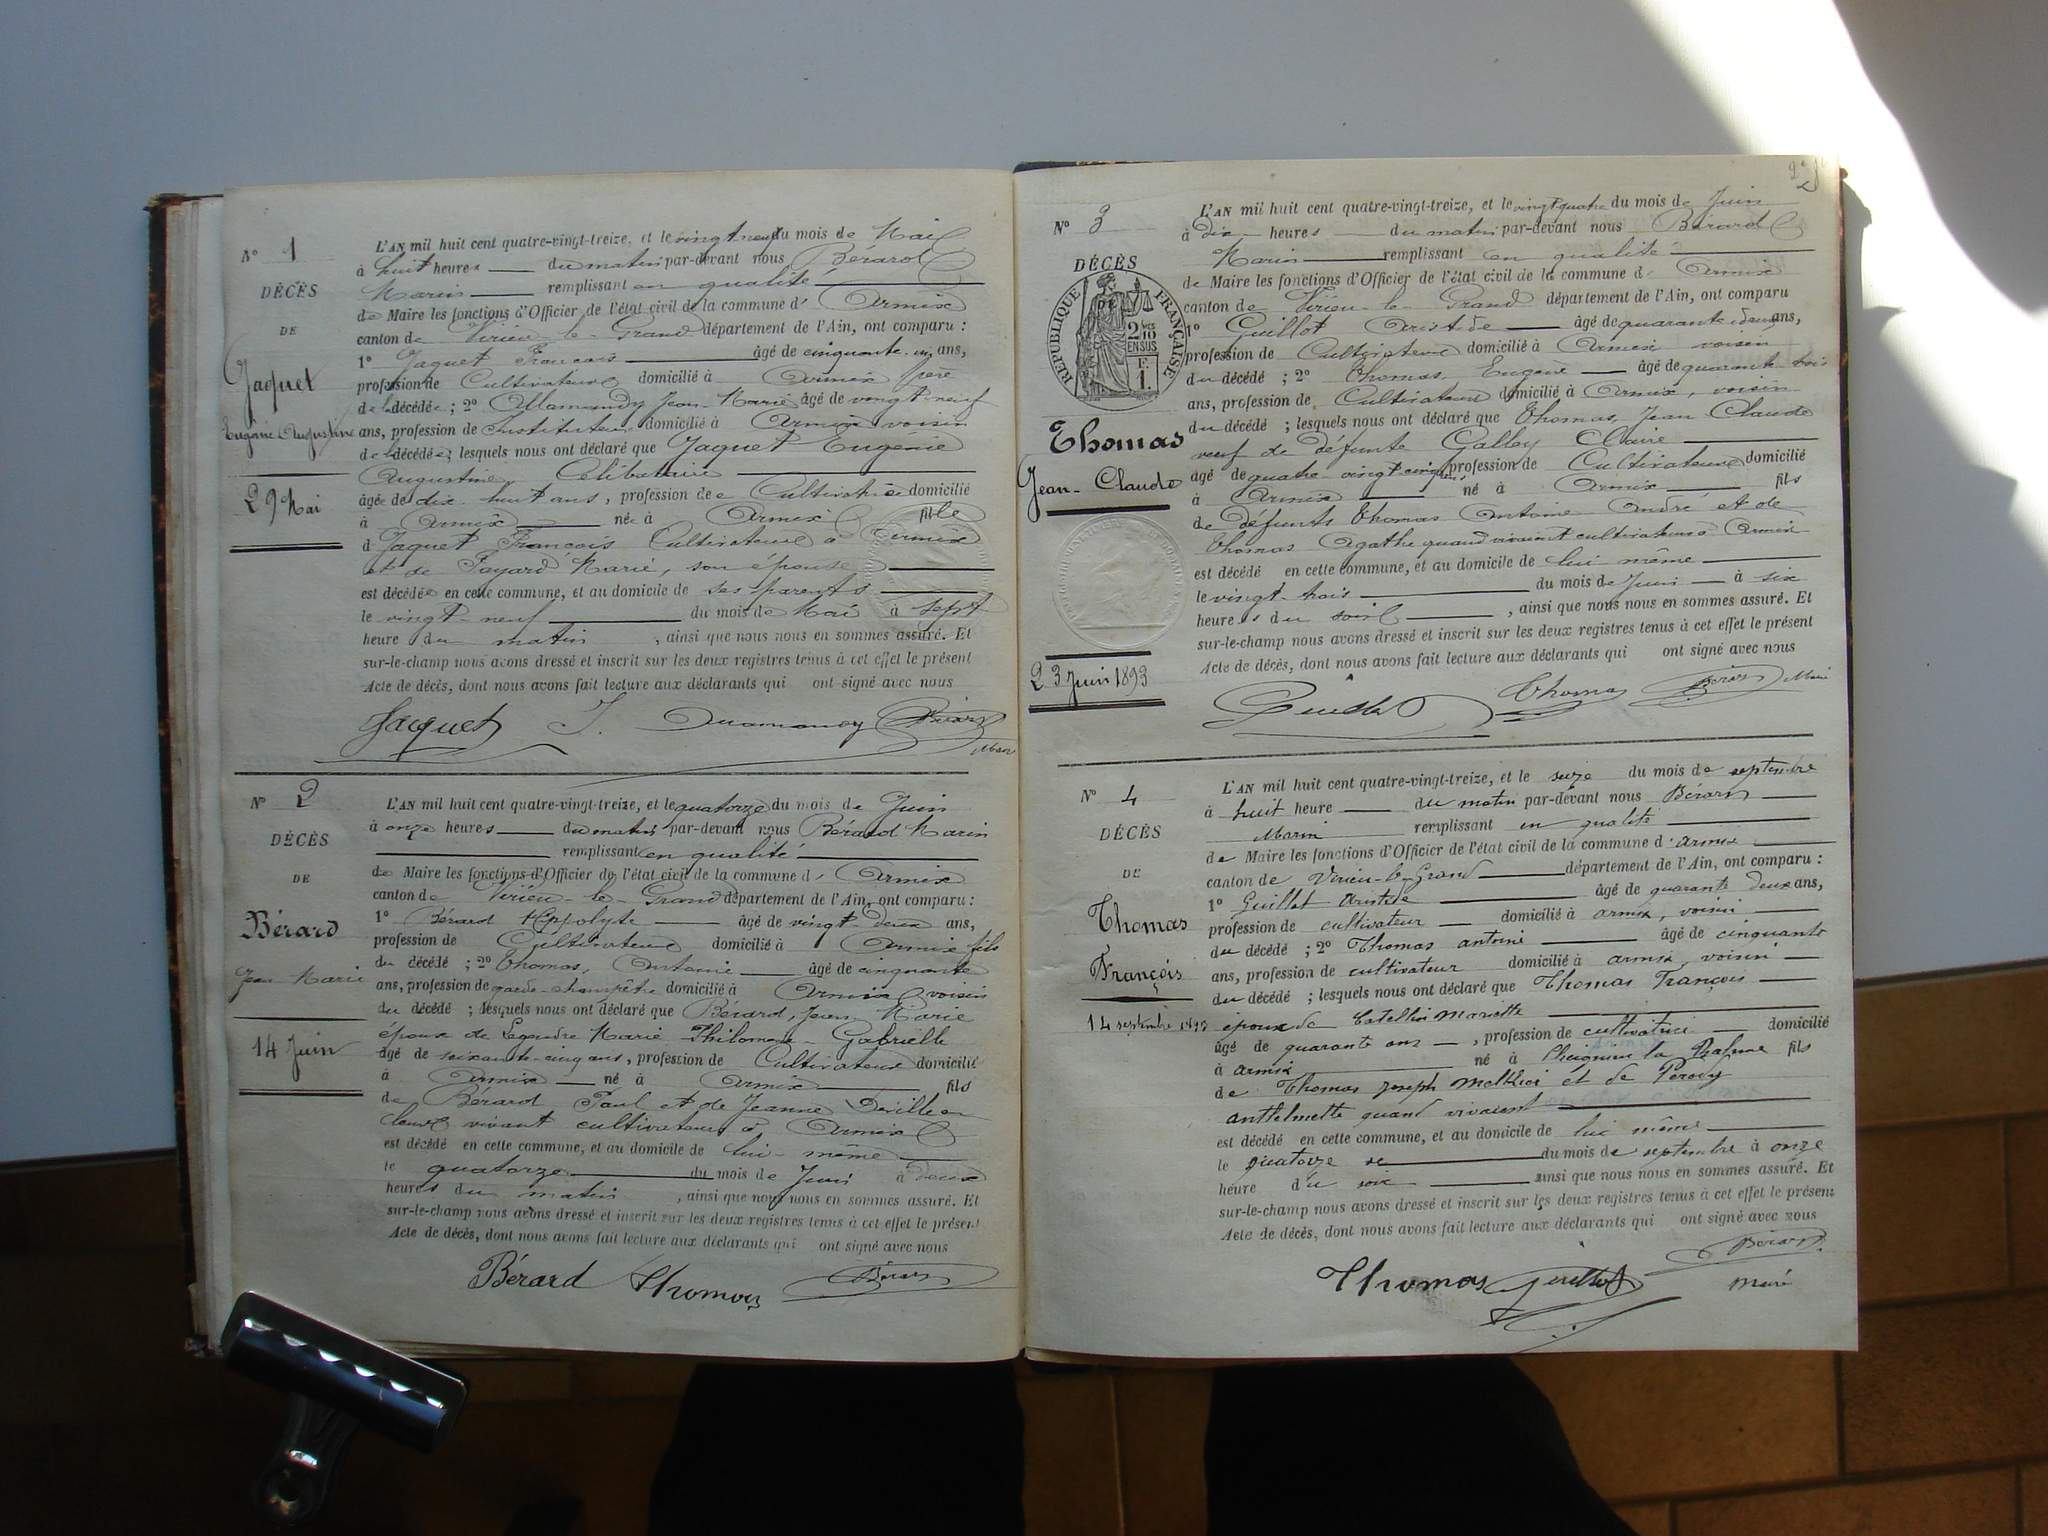 N° 1
DÉCÈS
DE
Jaquet
Eugénie Augustine
29 Mai
L'AN mil huit cent quatre-vingt-treize, et le vingt neuf du mois de Mai
à huit heures du matin par-devant nous Bérard
Marin remplissant en qualité
de Maire les fonctions d'Officier de l'état civil de la commune d' Armix
canton de Virieu-le-Grand département de l'Ain, ont comparu :
1° Jaquet François âgé de cinquante-un ans,
profession de Cultivateur domicilié à Armix père
de la décédée ; 2° Allamandy Jean-Marie âgé de vingt-neuf
ans, profession de instituteur domicilié à Armix voisin
de la décédée ; lesquels nous ont déclaré que Jaquet Eugénie
Augustine Célibataire
âgée de dix-huit ans, profession de Cultivatrice domicilié
à Armix née à Armix fille
d Jaquet François Cultivateur à Armix
et de Fayard Marie, son épouse
est décédée en cette commune, et au domicile de ses parents
le vingt-neuf du mois de Mai à sept
heure du matin, ainsi que nous nous en sommes assuré. Et
sur-le-champ nous avons dressé et inscrit sur les deux registres tenus à cet effet le présent
Acte de décès, dont nous avons fait lecture aux déclarants qui ont signé avec nous
Jacquet J. Bérard
Maire
N° 2
DÉCÈS
DE
Bérard
Jean Marie
14 Juin
L'AN mil huit cent quatre-vingt-treize, et le quatorze du mois de Juin
à onze heures du matin par-devant nous Bérard Marin
remplissant en qualité
de Maire les fonctions d'Officier de l'état civil de la commune d' Armix
canton de Virieu-le-Grand département de l'Ain, ont comparu :
1° Bérard Hyppolyte âgé de vingt-deux ans,
profession de Cultivateur domicilié à Armix fils
du décédé ; 2° Thomas, Antoine âgé de cinquante
ans, profession de garde-champêtre domicilié à Armix voisin
du décédé ; lesquels nous ont déclaré que Bérard, Jean Marie
époux de Legendre Marie Philomène Gabrielle
âgé de soixante-cinq ans, profession de Cultivateur domicilié
à Armix né à Armix fils
de Bérard Paul et de Jeanne Deville en
leur vivant cultivateurs à Armix
est décédé en cette commune, et au domicile de lui-même
le quatorze du mois de Juin à deux
heures du matin, ainsi que nous nous en sommes assuré. Et
sur-le-champ nous avons dressé et inscrit sur les deux registres tenus à cet effet le présent
Acte de décès, dont nous avons fait lecture aux déclarants qui ont signé avec nous
Bérard Thomas Bérard
2
N° 3
DÉCÈS
RÉPUBLIQUE FRANÇAISE
2 10
EN SUS
F
1.
Thomas
Jean-Claude
23 Juin 1893
L'AN mil huit cent quatre-vingt-treize, et le vingt quatre du mois de Juin
à dix heures du matin par-devant nous Bérard
Marin remplissant en qualité
de Maire les fonctions d'Officier de l'état civil de la commune d' Armix
canton de Virieu-le-Grand département de l'Ain, ont comparu
1° Guillot Aristide âgé de quarante deux ans,
profession de Cultivateur domicilié à Armix voisin
du décédé ; 2° Thomas, Eugène âgé de quarante trois
ans, profession de Cultivateur domicilié à Armix, voisin
du décédé ; lesquels nous ont déclaré que Thomas, Jean Claude
veuf de défunte Galley Claire
âgé de quatre-vingt cinq ans profession de Cultivateur domicilié
à Armix né à Armix fils
de défunts Thomas Antoine André et de
Thomas Agathe quand vivaient cultivateurs à Armix
est décédé en cette commune, et au domicile de lui même
le vingt-trois du mois de Juin à six
heures du soir, ainsi que nous nous en sommes assuré. Et
sur-le-champ nous avons dressé et inscrit sur les deux registres tenus à cet effet le présent
Acte de décès, dont nous avons fait lecture aux déclarants qui ont signé avec nous
Guillot Thomas Bérard Maire
N° 4
DÉCÈS
DE
Thomas
François
14 septembre 1893
L'AN mil huit cent quatre-vingt-treize, et le seize du mois de septembre
à huit heure du matin par-devant nous Bérard
Marin remplissant en qualité
de Maire les fonctions d'Officier de l'état civil de la commune d' armix
canton de Virieu-le-Grand département de l'Ain, ont comparu :
1° Guillot Aristide âgé de quarante deux ans,
profession de cultivateur domicilié à armix, voisin
du décédé ; 2° Thomas antoine âgé de cinquante
ans, profession de cultivateur domicilié à armix, voisin
du décédé ; lesquels nous ont déclaré que Thomas François
époux de Mariette
âgé de quarante ans, profession de cultivatrice domicilié
à armix né à Cheignieu la Balme fils
de Thomas joseph et de
anthelmette quand vivaient
est décédé en cette commune, et au domicile de lui même
le quatorze du mois de septembre à onze
heure du soir ainsi que nous nous en sommes assuré. Et
sur-le-champ nous avons dressé et inscrit sur les deux registres tenus à cet effet le présent
Acte de décès, dont nous avons fait lecture aux déclarants qui ont signé avec nous
Thomas Guillot Bérard
Maire